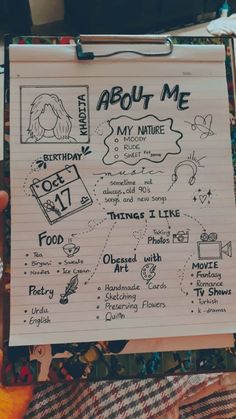 ABOUT ME
KHADIJA
MY NATURE
• MOODY
• RUDE
• SWEET
BIRTHDAY
Oct
17
music
sometime not
always, old 90's
songs and new songs
THINGS I LIKE
FOOD
• Tea
• Biryani
• Noodles
• Sweets
• Ice Cream
Taking
Photos
MOVIE
• Fantasy
• Romantic
TV Shows
• Turkish
• k-dramas
Obsessed with
Art
• Handmade Cards
• Sketching
• Preserving Flowers
Poetry
• Urdu
• English